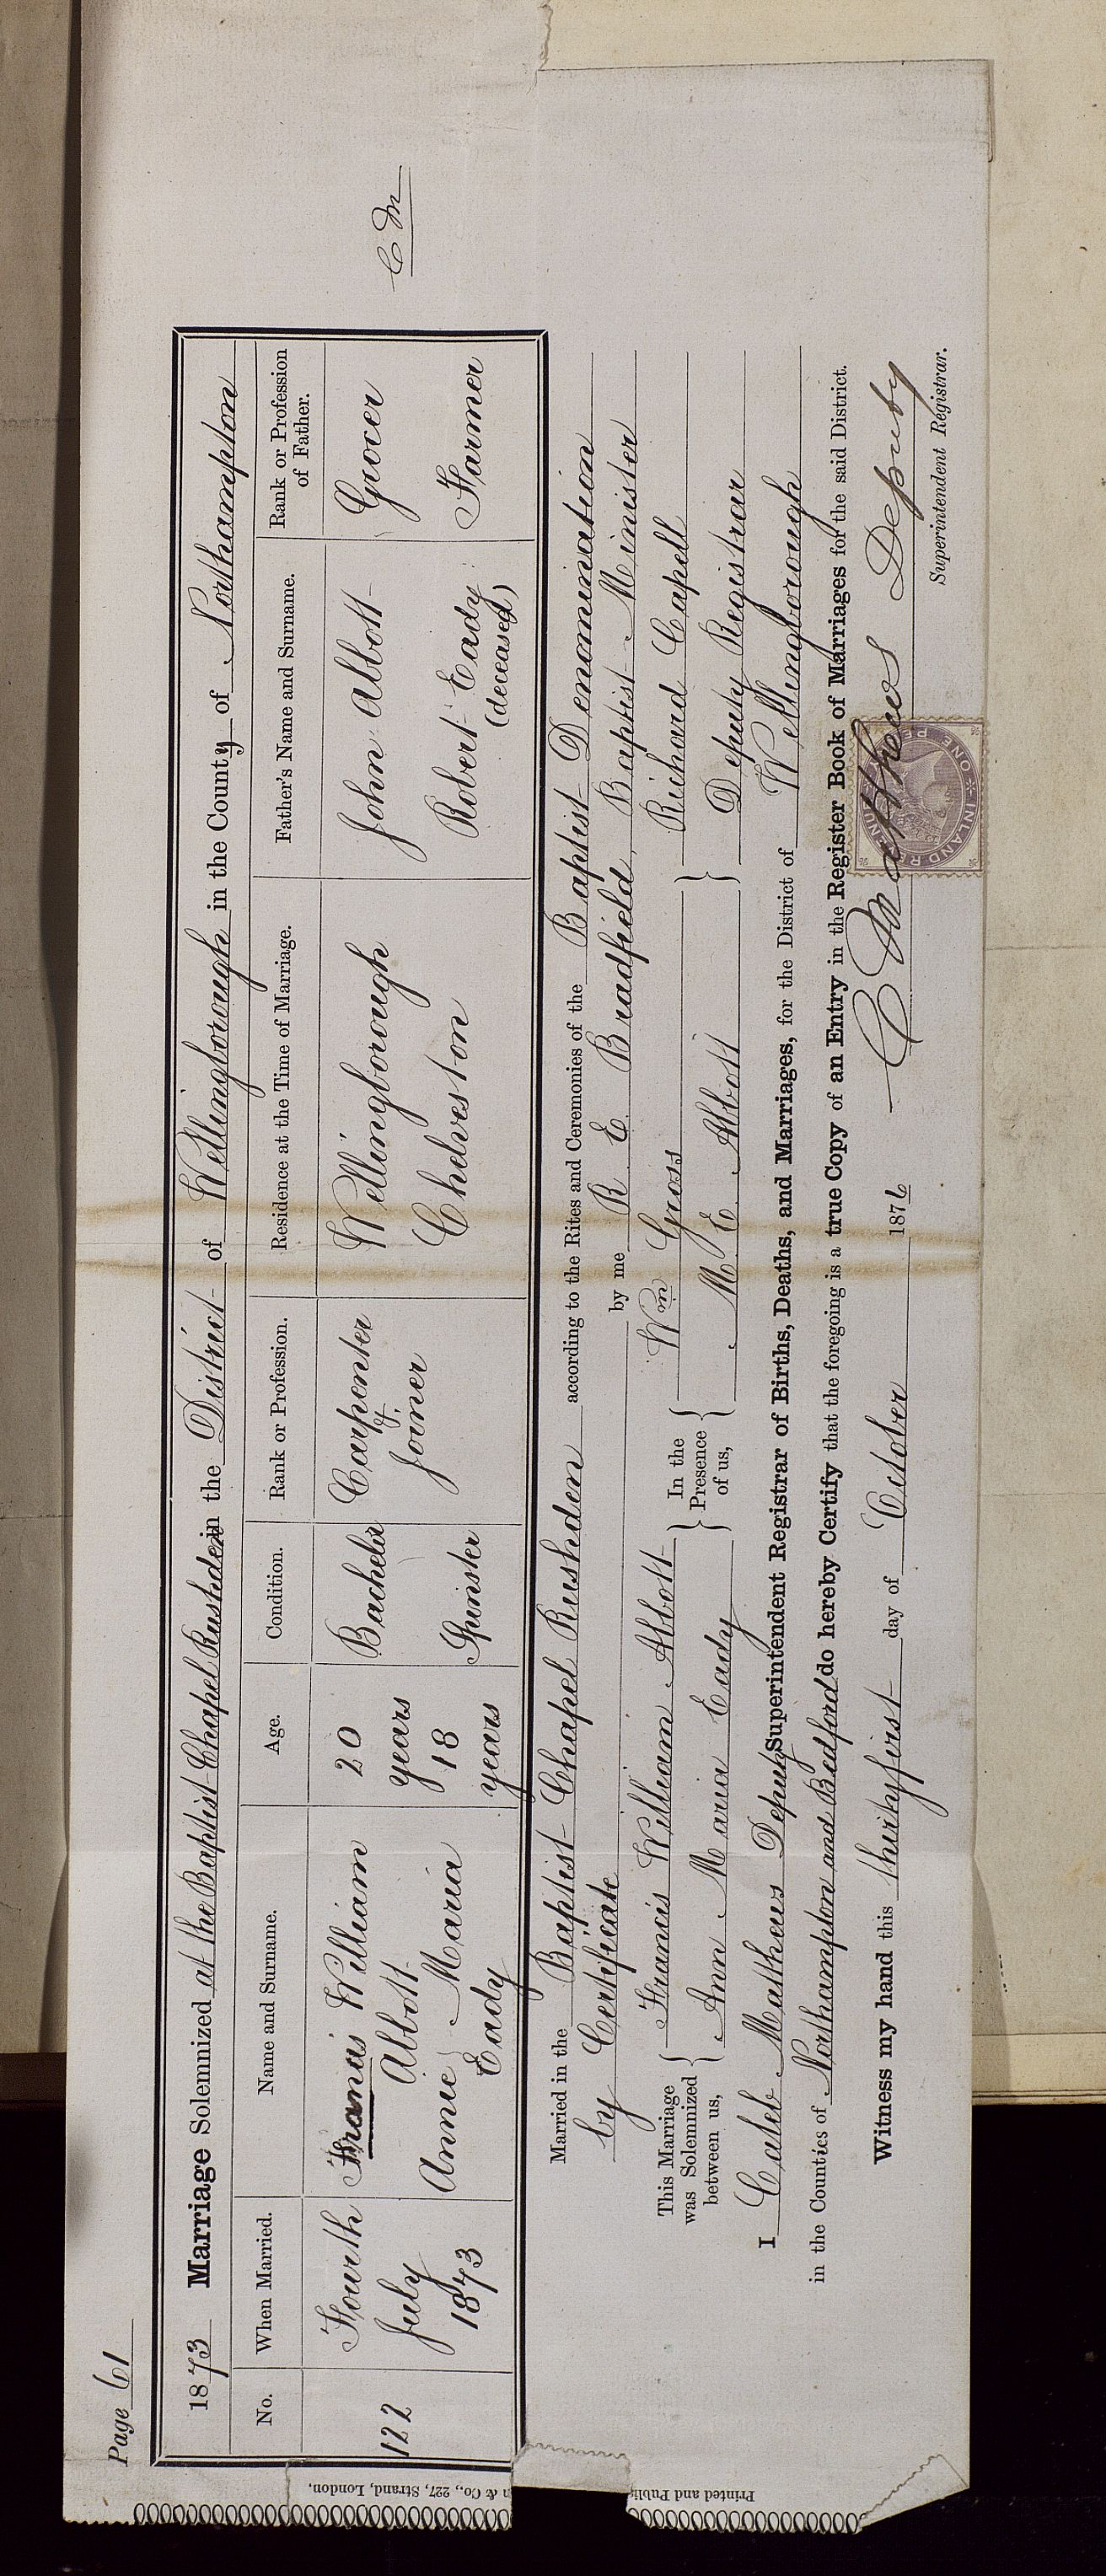 Page 61
1873 Marriage Solemnized at the Baptist Chapel Rushden in the District of Wellingborough in the County of Northampton
No. When Married. Name and Surname. Age. Condition. Rank or Profession. Residence at the Time of Marriage. Father's Name and Surname. Rank or Profession of Father.
122 Fourth July 1873 Francis William Abbott 20 years Bachelor Carpenter & Joiner Wellingborough John Abbott Grocer
Annie Maria Eady 18 years Spinster Chelveston Robert Eady (deceased) Farmer
C M
Married in the Baptist Chapel Rushden according to the Rites and Ceremonies of the Baptist Denomination
by Certificate by me R. E. Bradfield, Baptist Minister
This Marriage was Solemnized between us, { Francis William Abbott } In the Presence of us, { Wm Gross } Richard Capell
Ann Maria Eady M. E. Abbott Deputy Registrar
I Caleb Matthews Deputy Superintendent Registrar of Births, Deaths, and Marriages, for the District of Wellingborough
in the Counties of Northampton and Bedford do hereby Certify that the foregoing is a true Copy of an Entry in the Register Book of Marriages for the said District.
Witness my hand this thirtyfirst day of October 1876 C Matthews Deputy
Superintendent Registrar.
INLAND REVENUE ONE PENNY
Printed and Publis
n & Co., 227, Strand, London.